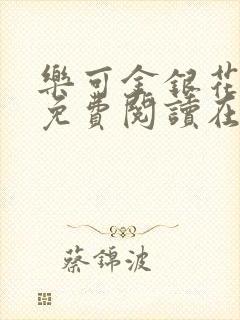 樂可金銀花
免費閱讀在
蔡錦波